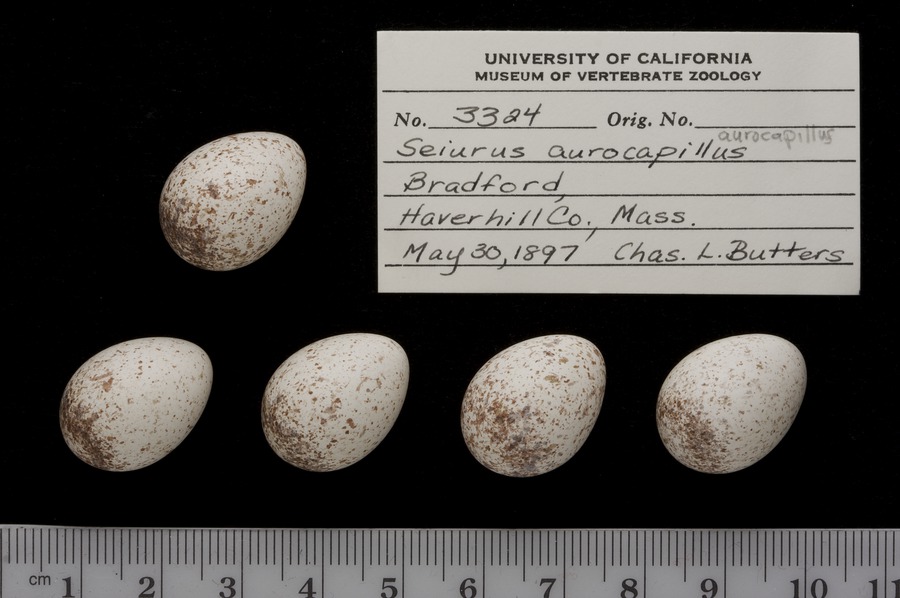 UNIVERSITY OF CALIFORNIA
MUSEUM OF VERTEBRATE ZOOLOGY
No. 3324 Orig. No.
aurocapillus
Seiurus aurocapillus
Bradford,
Haverhill Co., Mass.
May 30, 1897 Chas. L. Butters
cm 1 2 3 4 5 6 7 8 9 10 11